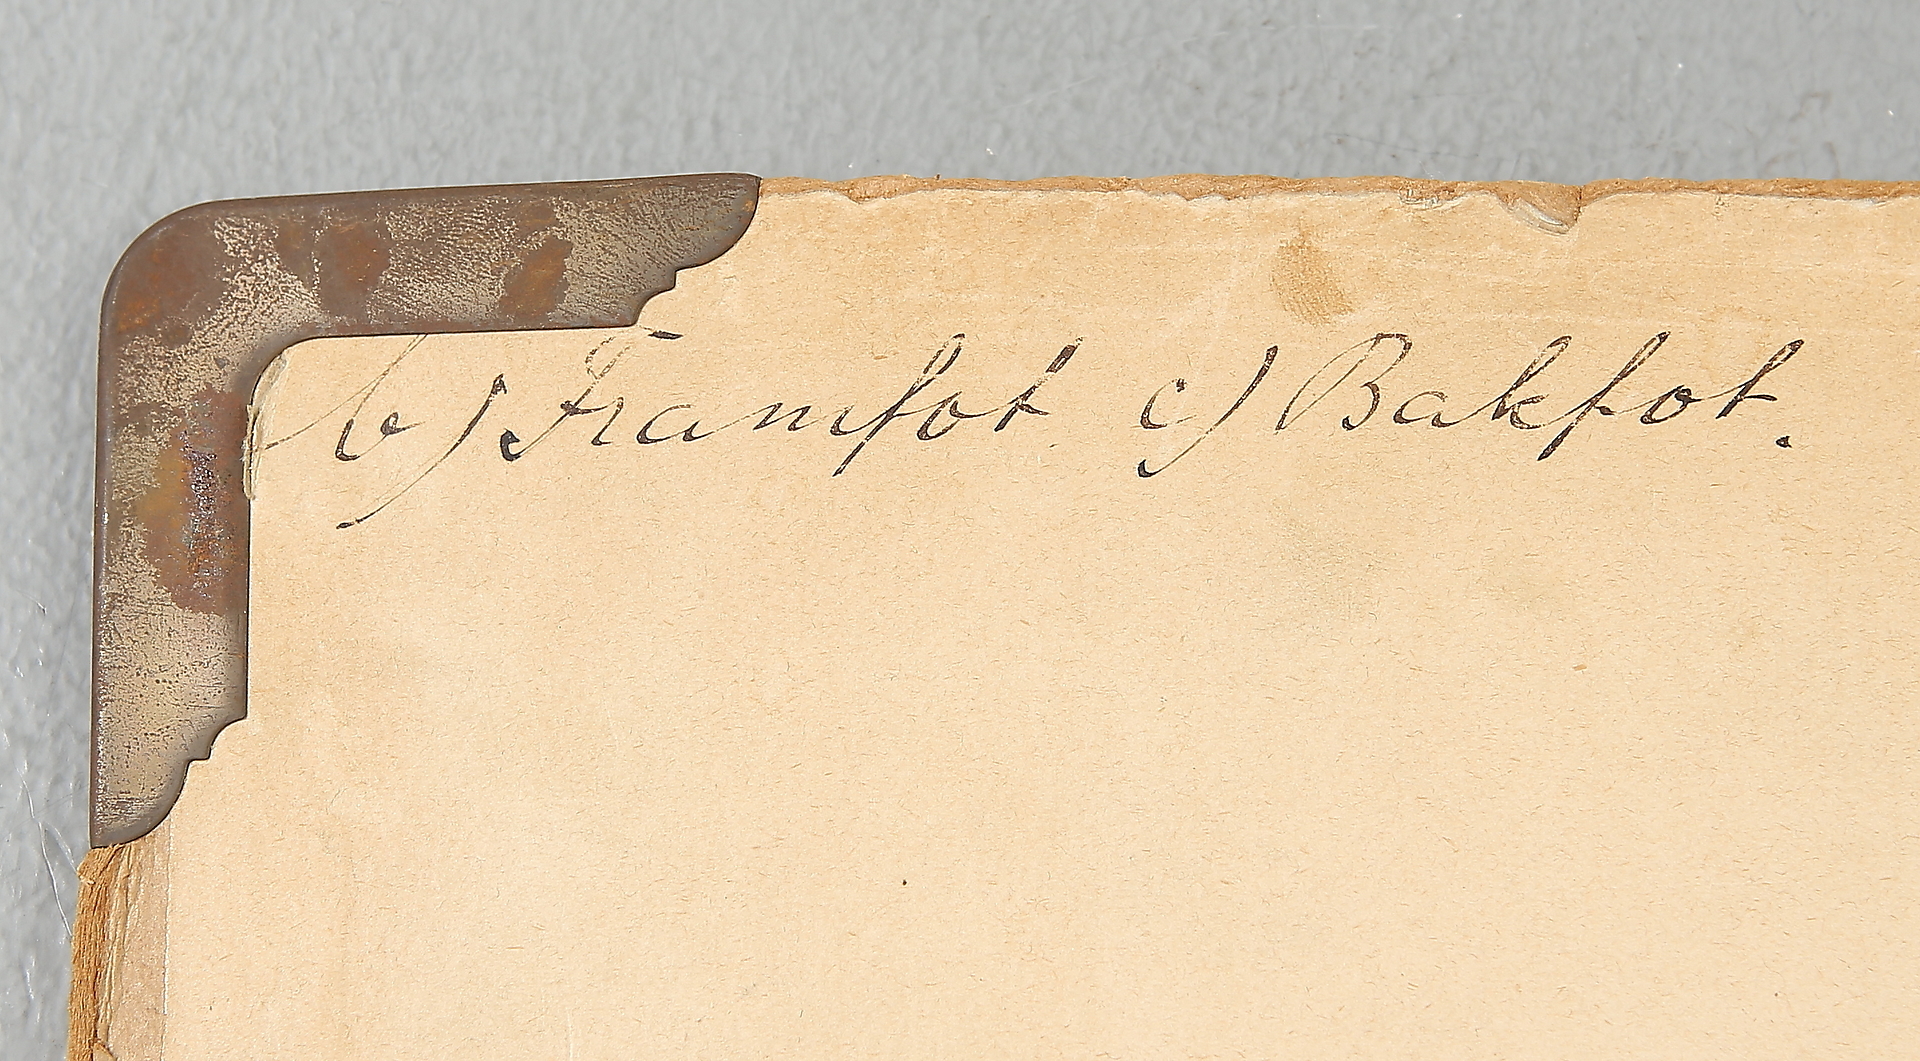 b) Framfot c) Bakfot.